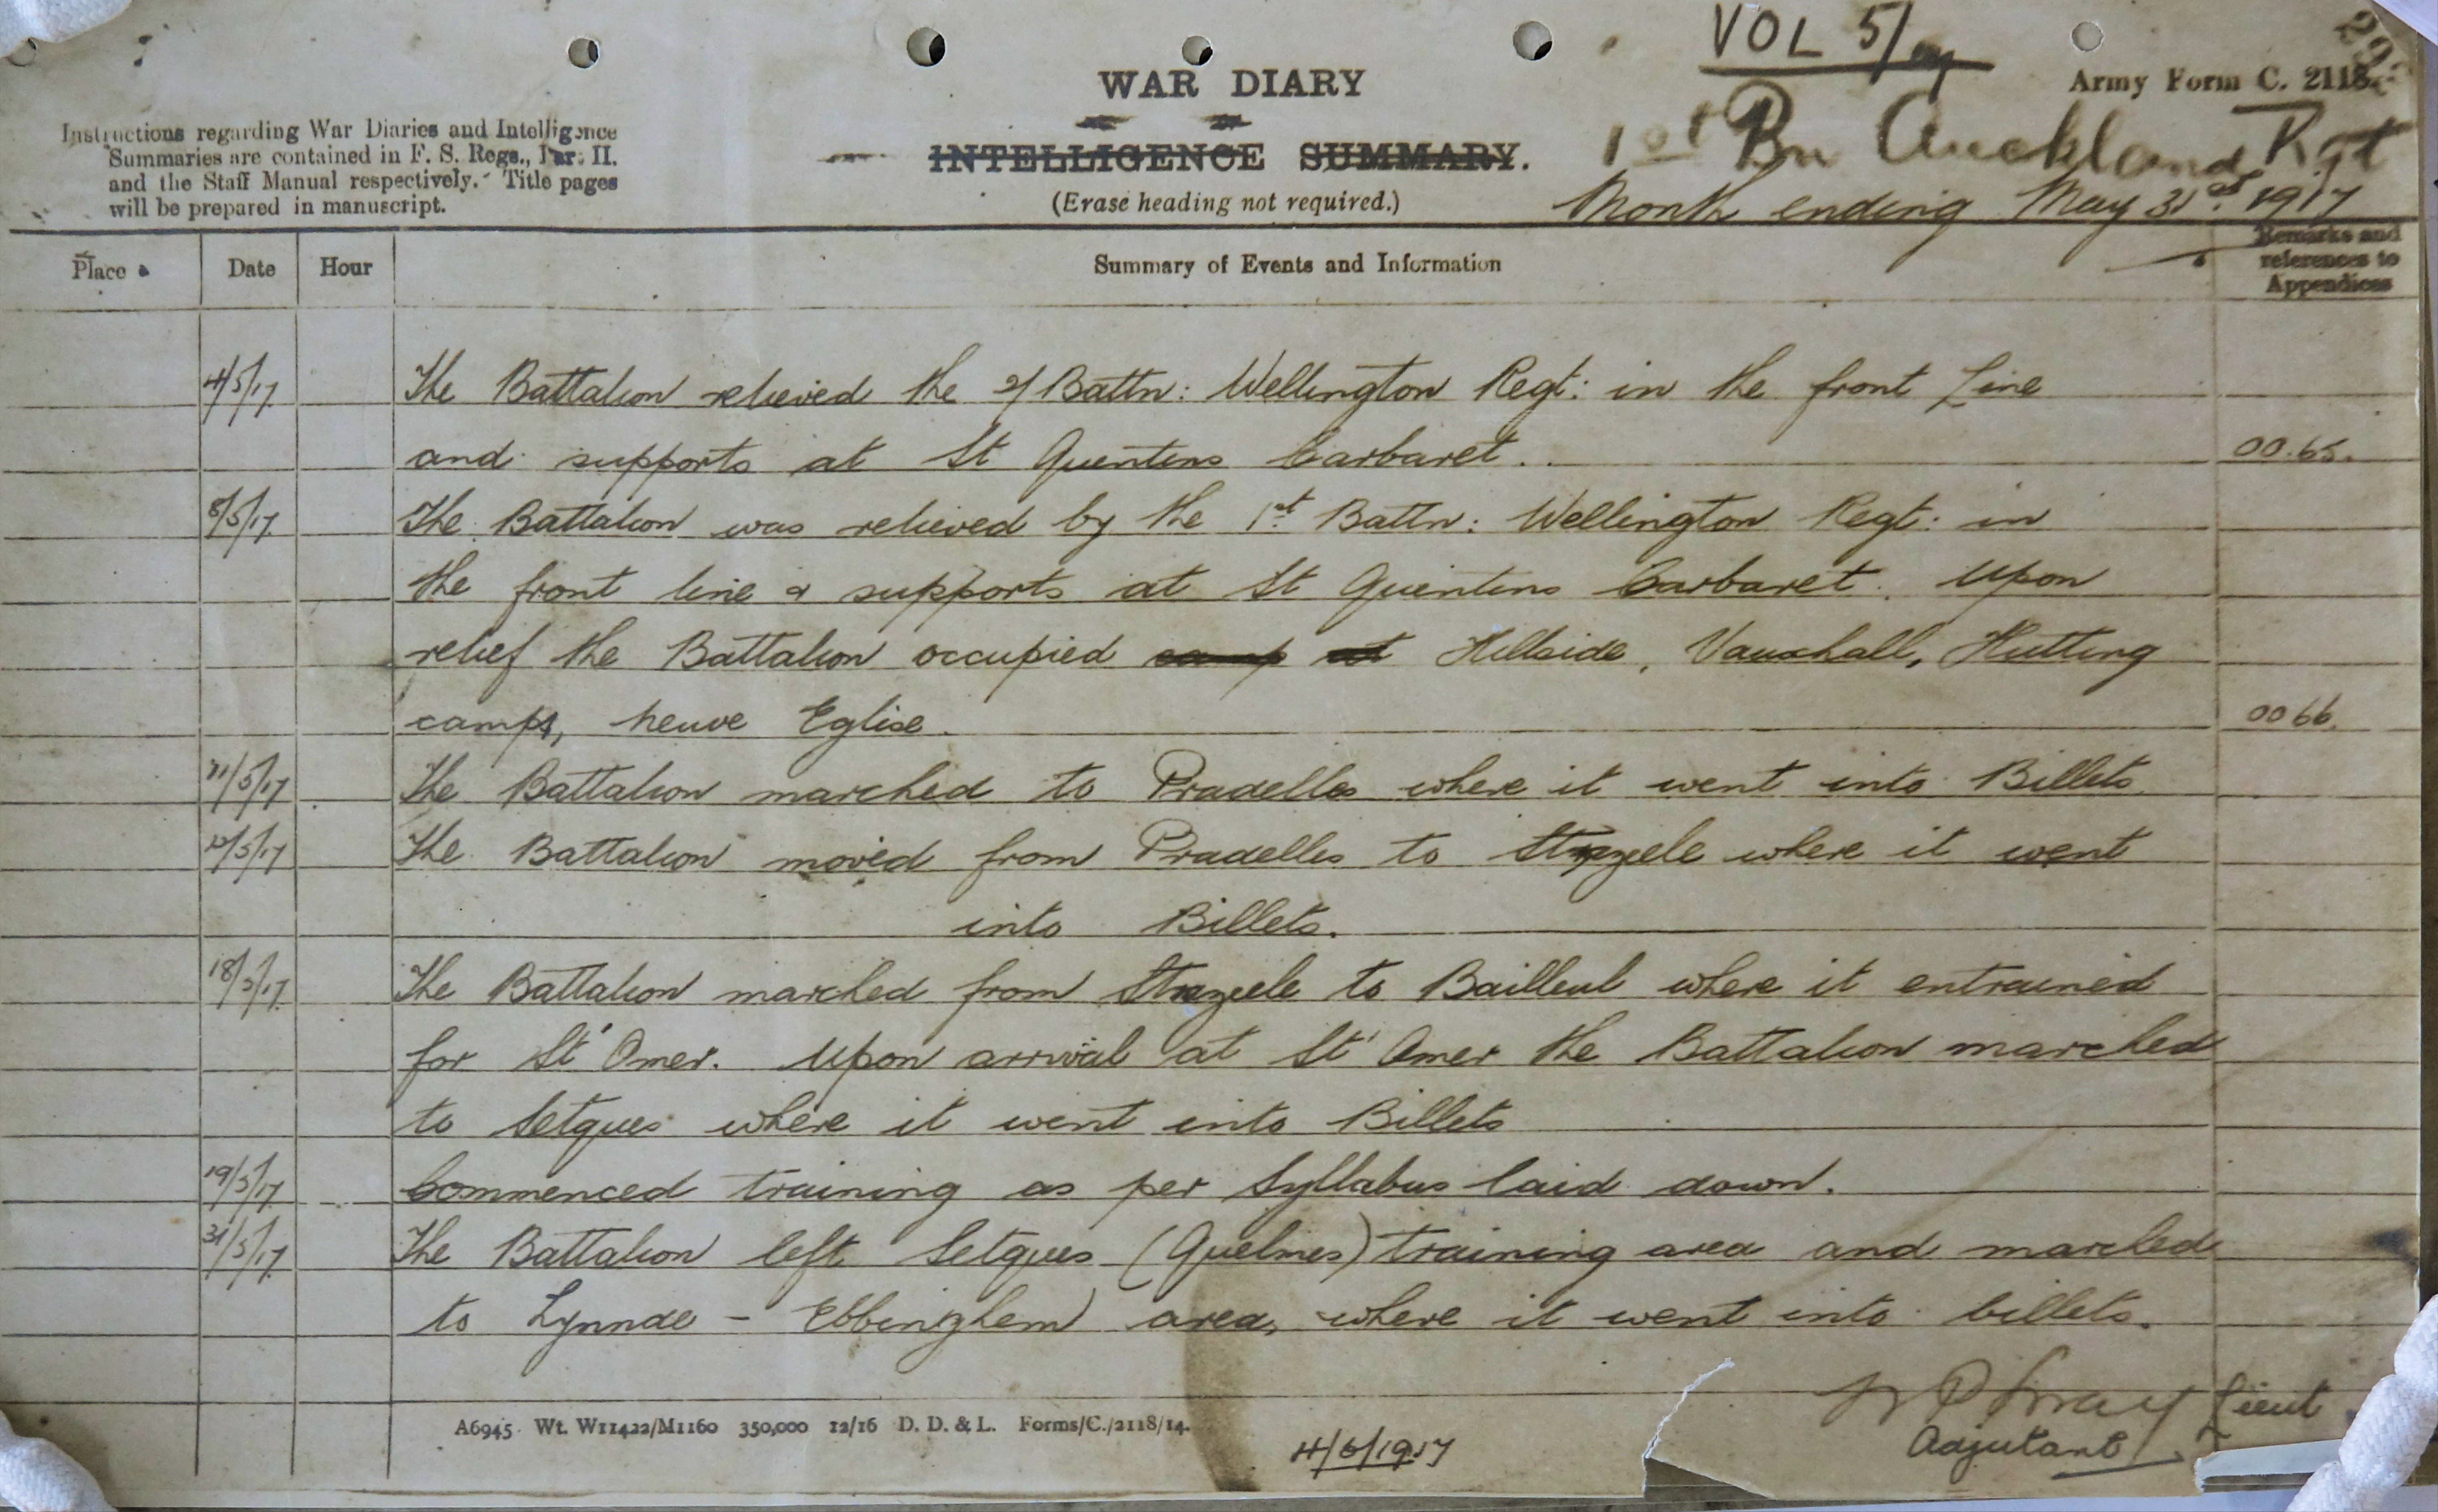 VOL 5/
WAR DIARY
Army Form C. 2118.
Instructions regarding War Diaries and Intelligence
Summaries are contained in F. S. Regs., Part II.
and the Staff Manual respectively. Title pages
will be prepared in manuscript.
INTELLIGENCE SUMMARY.
(Erase heading not required.)
1st Bn Auckland Rgt
Month ending May 31st 1917
Place
Date
Hour
Summary of Events and Information
Remarks and
references to
Appendices
4/5/17 The Battalion relieved the 2/Battn: Wellington Regt: in the front Line
and supports at St Quentins Carbaret. OO.65.
8/5/17 The Battalion was relieved by the 1st Battn: Wellington Regt: in
the front line & supports at St Quentins Carbaret. Upon
relief the Battalion occupied camp at Hillside, Vauxhall, Hutting
camps, neuve Eglise. OO 66.
11/5/17 The Battalion marched to Pradelles where it went into Billets
12/5/17 The Battalion moved from Pradelles to Strazeele where it went
into Billets.
18/5/17 The Battalion marched from Strazeele to Bailleul where it entrained
for St Omer. Upon arrival at St Omer the Battalion marched
to Setques where it went into Billets
19/5/17 Commenced training as per Syllabus laid down.
31/5/17 The Battalion left Setques (Quelmes) training area and marched
to Lynnde - Ebbinghem area, where it went into billets.
Lieut
Adjutant
A6945 Wt. W11422/M1160 350,000 12/16 D. D. & L. Forms/C./2118/14.
4/6/1917